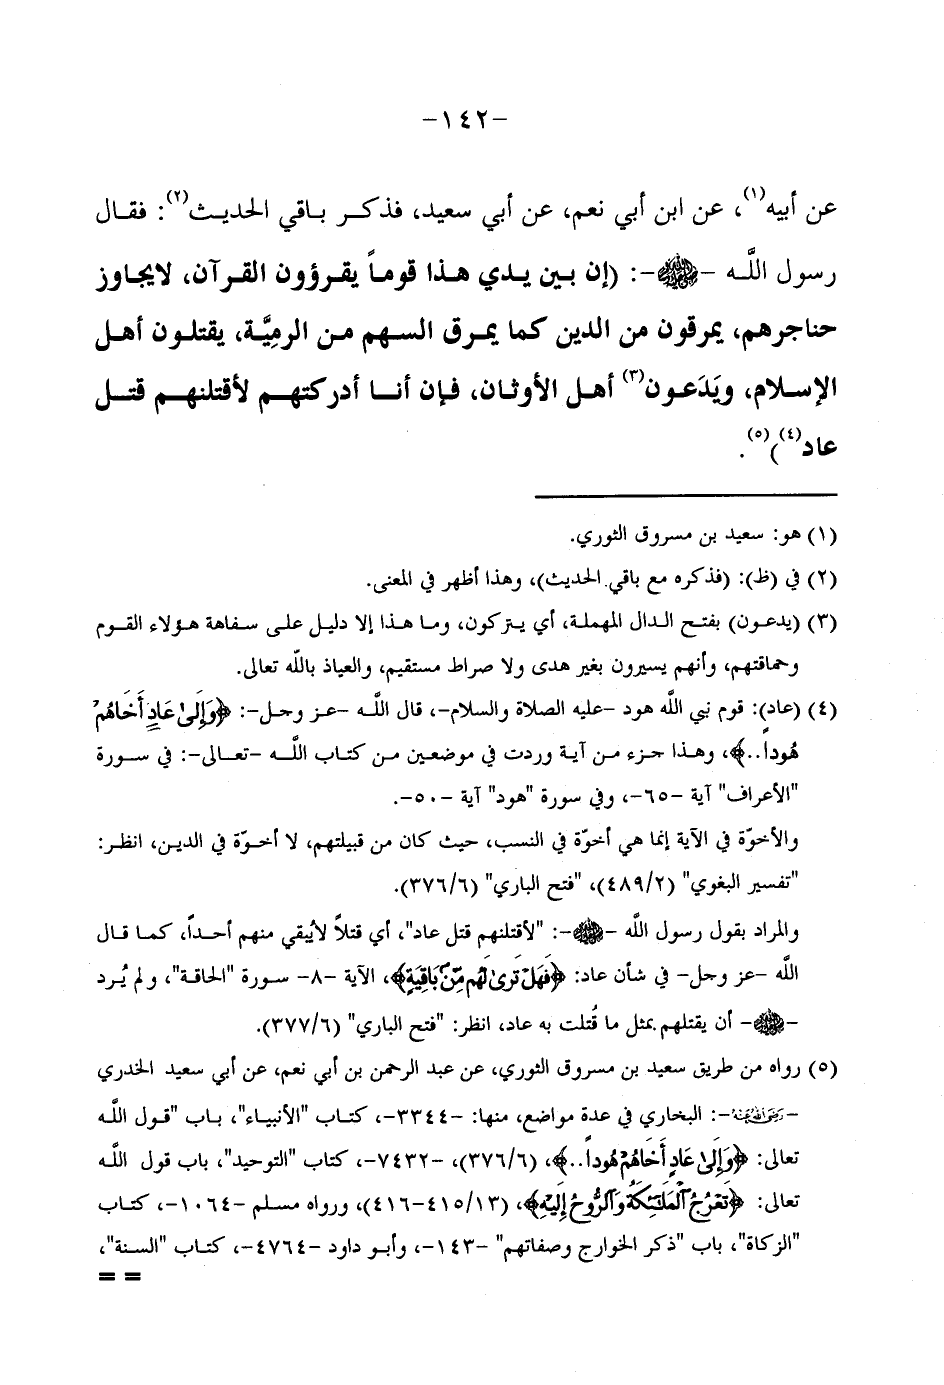 -١٤٢-
عن أبيه(١)، عن ابن أبي نعم، عن أبي سعيد، فذكر باقي الحديث(٢): فقال
رسول الله -ﷺ-: (إن بين يدي هذا قوماً يقرؤون القرآن، لايجاوز
حناجرهم، يمرقون من الدين كما يمرق السهم من الرميَّة، يقتلون أهل
الإسلام، ويَدَعون(٣) أهل الأوثان، فإن أنا أدركتهم لأقتلنهم قتل
عاد(٤))(٥).
(١) هو: سعيد بن مسروق الثوري.
(٢) في (ظ): (فذكره مع باقي الحديث)، وهذا أظهر في المعنى.
(٣) (يدعون) بفتح الدال المهملة، أي يتركون، وما هذا إلا دليل على سفاهة هؤلاء القوم
وحماقتهم، وأنهم يسيرون بغير هدى ولا صراط مستقيم، والعياذ بالله تعالى.
(٤) (عاد): قوم نبي الله هود -عليه الصلاة والسلام-، قال الله -عز وجل-: ﴿وَإِلَىٰ عَادٍ أَخَاهُمْ
هُوداً..﴾، وهذا جزء من آية وردت في موضعين من كتاب الله -تعالى-: في سورة
"الأعراف" آية -٦٥-، وفي سورة "هود" آية -٥٠-.
والأخوّة في الآية إنما هي أخوّة في النسب، حيث كان من قبيلتهم، لا أخوّة في الدين، انظر:
"تفسير البغوي" (٤٨٩/٢)، "فتح الباري" (٣٧٦/٦).
والمراد بقول رسول الله -ﷺ-: "لأقتلنهم قتل عاد"، أي قتلاً لايُبقي منهم أحداً، كما قال
الله -عز وجل- في شأن عاد: ﴿فَهَلْ تَرَىٰ لَهُم مِّنْ بَاقِيَةٍ﴾، الآية -٨- سورة "الحاقة"، ولم يُرد
-ﷺ- أن يقتلهم بمثل ما قُتلت به عاد، انظر: "فتح الباري" (٣٧٧/٦).
(٥) رواه من طريق سعيد بن مسروق الثوري، عن عبد الرحمن بن أبي نعم، عن أبي سعيد الخدري
-رضي الله عنه-: البخاري في عدة مواضع، منها: -٣٣٤٤-، كتاب "الأنبياء"، باب "قول الله
تعالى: ﴿وَإِلَىٰ عَادٍ أَخَاهُمْ هُوداً..﴾، (٣٧٦/٦)، -٧٤٣٢-، كتاب "التوحيد"، باب قول الله
تعالى: ﴿تَعْرُجُ ٱلْمَلَـٰٓئِكَةُ وَٱلرُّوحُ إِلَيْهِ﴾، (٤١٥/١٣-٤١٦)، ورواه مسلم -١٠٦٤-، كتاب
"الزكاة"، باب "ذكر الخوارج وصفاتهم" -١٤٣-، وأبو داود -٤٧٦٤-، كتاب "السنة"،
= =